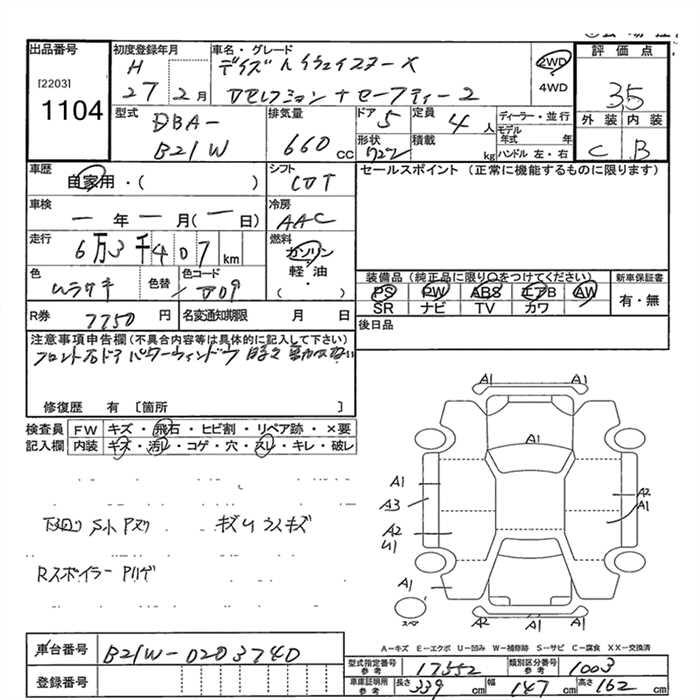 出品番号
[2203]
1104
初度登録年月
H
27 2月
車名・グレード
デイズ ハイウェイスターX
Vセレクション+セーフティー2
2WD
4WD
評価点
3.5
外装 内装
C B
型式
DBA-
B21W
排気量
660 cc
ドア 5
定員 4人
形状
積載 kg
ディーラー・並行
モデル年式 年
ハンドル 左・右
車歴
自家用・( )
シフト
CVT
セールスポイント (正常に機能するものに限ります)
車検
— 年 — 月 ( — 日)
冷房
AAC
走行
6万3千407km
燃料
ガソリン
・
軽・油
( )
色
ムラサキ
色替
色コード
装備品 (純正品に限り○をつけてください)
PS PW ABS エアB AW
SR ナビ TV カワ
新車保証書
有・無
R券 7750円
名変通知期限 月 日
後日品
注意事項申告欄(不具合内容等は具体的に記入して下さい)
フロント右ドア パワーウィンドウ
修復歴 有 [箇所 ]
検査員
記入欄
FW キズ・飛石・ヒビ割・リペア跡・×要
内装 キズ・汚レ・コゲ・穴・スレ・キレ・破レ
下回り サビ
キズ U ウスキズ
Rスポイラー Pハゲ
A1 A1
A1
A1
A3
A2
A1
A2
U1
A1
A1 A1 A1
スペア
A—キズ E—エクボ U—凹み W—補修跡 S—サビ C—腐食 XX—交換済
車台番号
B21W-0203740
登録番号
型式指定番号 参考 17552
類別区分番号 参考 1003
車庫証明用 参考
長さ 339 cm
幅 147 cm
高さ 162 cm